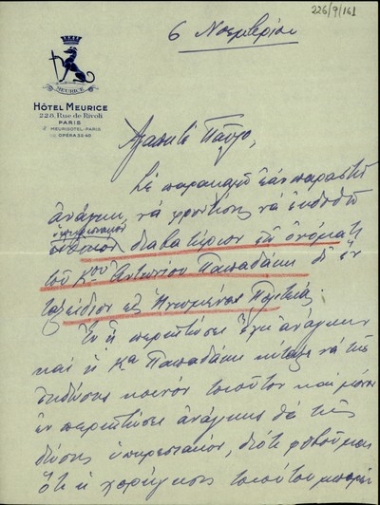 226/9/161
6 Νοεμβρίου
MEURICE
HÔTEL MEURICE
228, Rue de Rivoli
PARIS
MEURISOTEL-PARIS
OPERA 33-60
Αγαπητέ Παύλο,
Σε παρακαλώ εάν παραστή
ανάγκη, να φροντίσης να εκδοθή
διαβατήριον επ' ονόματι
του Κου Αντωνίου Παπαδάκη δι' έν
ταξείδιον εις Ηνωμένας Πολιτείας.
Εν η περιπτώσει έχει ανάγκην
και η Κα Παπαδάκη κύταξε να της
εκδώσης κοινόν τοιούτον και μόνον
εν περιπτώσει ανάγκης θα της
δώσης υπηρεσιακόν, διότι φοβούμαι
ότι η χορήγησις τοιούτου μπορεί